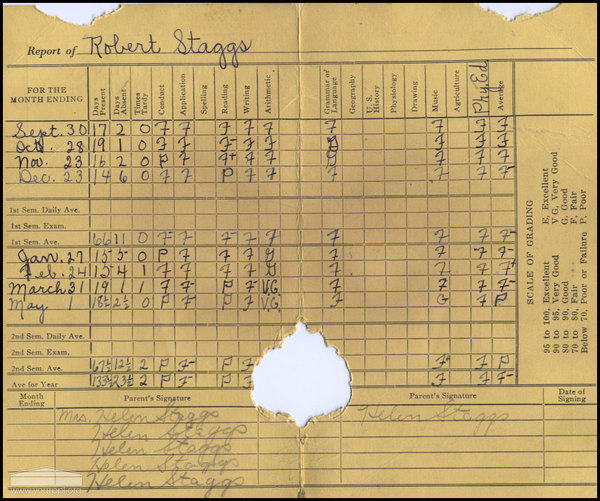 Report of Robert Staggs
FOR THE MONTH ENDING Days Present Days Absent Times Tardy Conduct Application Spelling Reading Writing Arithmetic Grammar of Language Geography U. S. History Physiology Drawing Music Agriculture Phy. Ed Average
Sept. 30 17 2 0 F F F F F F F F F
Oct. 28 19 1 0 F F F- F F F F F
Nov. 23 16 2 0 P F F+ F F F F F
Dec. 23 14 6 0 F F P F F F F F F
1st Sem. Daily Ave.
1st Sem. Exam.
1st Sem. Ave. 66 11 0 F- F F- F F F F F F-
Jan. 27 15 5 0 P F F F G F F F F-
Feb. 24 15 4 1 F F F F G F F F F+
March 31 19 1 1 F F- P F- V.G. F F F F-
May 1 18½ 2½ 0 P F- P F V.G. F G F P
2nd Sem. Daily Ave.
2nd Sem. Exam.
2nd Sem. Ave. 67½ 12½ 2 P F- P F F+ F P
Ave for Year 133½ 23½ 2 P F P F F F F-
SCALE OF GRADING
95 to 100, Excellent E, Excellent
90 to 95, Very Good V G, Very Good
80 to 90, Good G, Good
70 to 80, Fair F, Fair
Below 70, Poor or Failure P, Poor
Month Ending Parent's Signature Parent's Signature Date of Signing
Mrs. Helen Staggs Helen Staggs
Helen Staggs
Helen Staggs
Helen Staggs
Helen Staggs